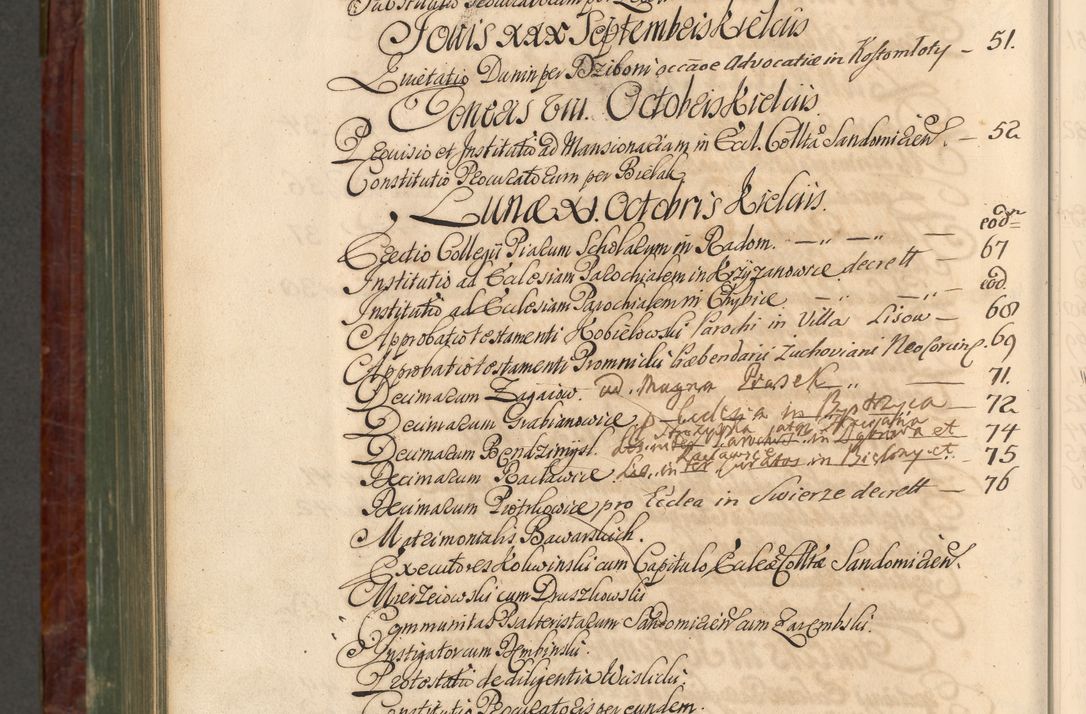 Substitutio Procuratorum per
Jouis XXX Septembris Kielciis
Euictatio Dunin per Dziboni occãoe Advocatiæ in Kostomłoty — 51.
Veneris VIII. Octobris Kielciis
Requisio et Institutio ad Mansionariam in Eccl. Collta Sandomirien. — 52
Constitutio Procuratorum per Bielak
Lunæ XI. Octobris Kielciis.
Erectio Collegii Piarum Scholarum in Radom. —"— — eod
Institutio ad Ecclesiam Parochialem in Krzyżanowice decrett — 67
Institutio ad Ecclesiam Parochialem in Chybice —"— —"— eod.
Approbatio testamenti Kobielowski Parochi in Villa Lisow — 68
Approbatio testamenti Promnicki Præbendarii Zuchoviani Neocorcin. 69
Decimarum Zagaiow. ad. Magna Piasek —"— 71.
Decimarum Grabianowice Ecclesia in Bystrzyca — 72
Decimarum Bendzimysl. in et — 74
Decimarum Racławice. in Bielany et. — 75
Decimarum Piotrkowice pro Ecclea in Swierze decrett — 76
Matrimonialis Bawarskich.
Executores Kolwinski cum Capitulo Ecleæ Colltæ Sandomirien.
Mierzeiowski cum Druszkowski
Communitas Psalteristarum Sandomirien cum Zarembski.
Instigator cum Dembinski.
Protestatio de diligentia Weislicki.
Constitutio Procuratoris per eundem.